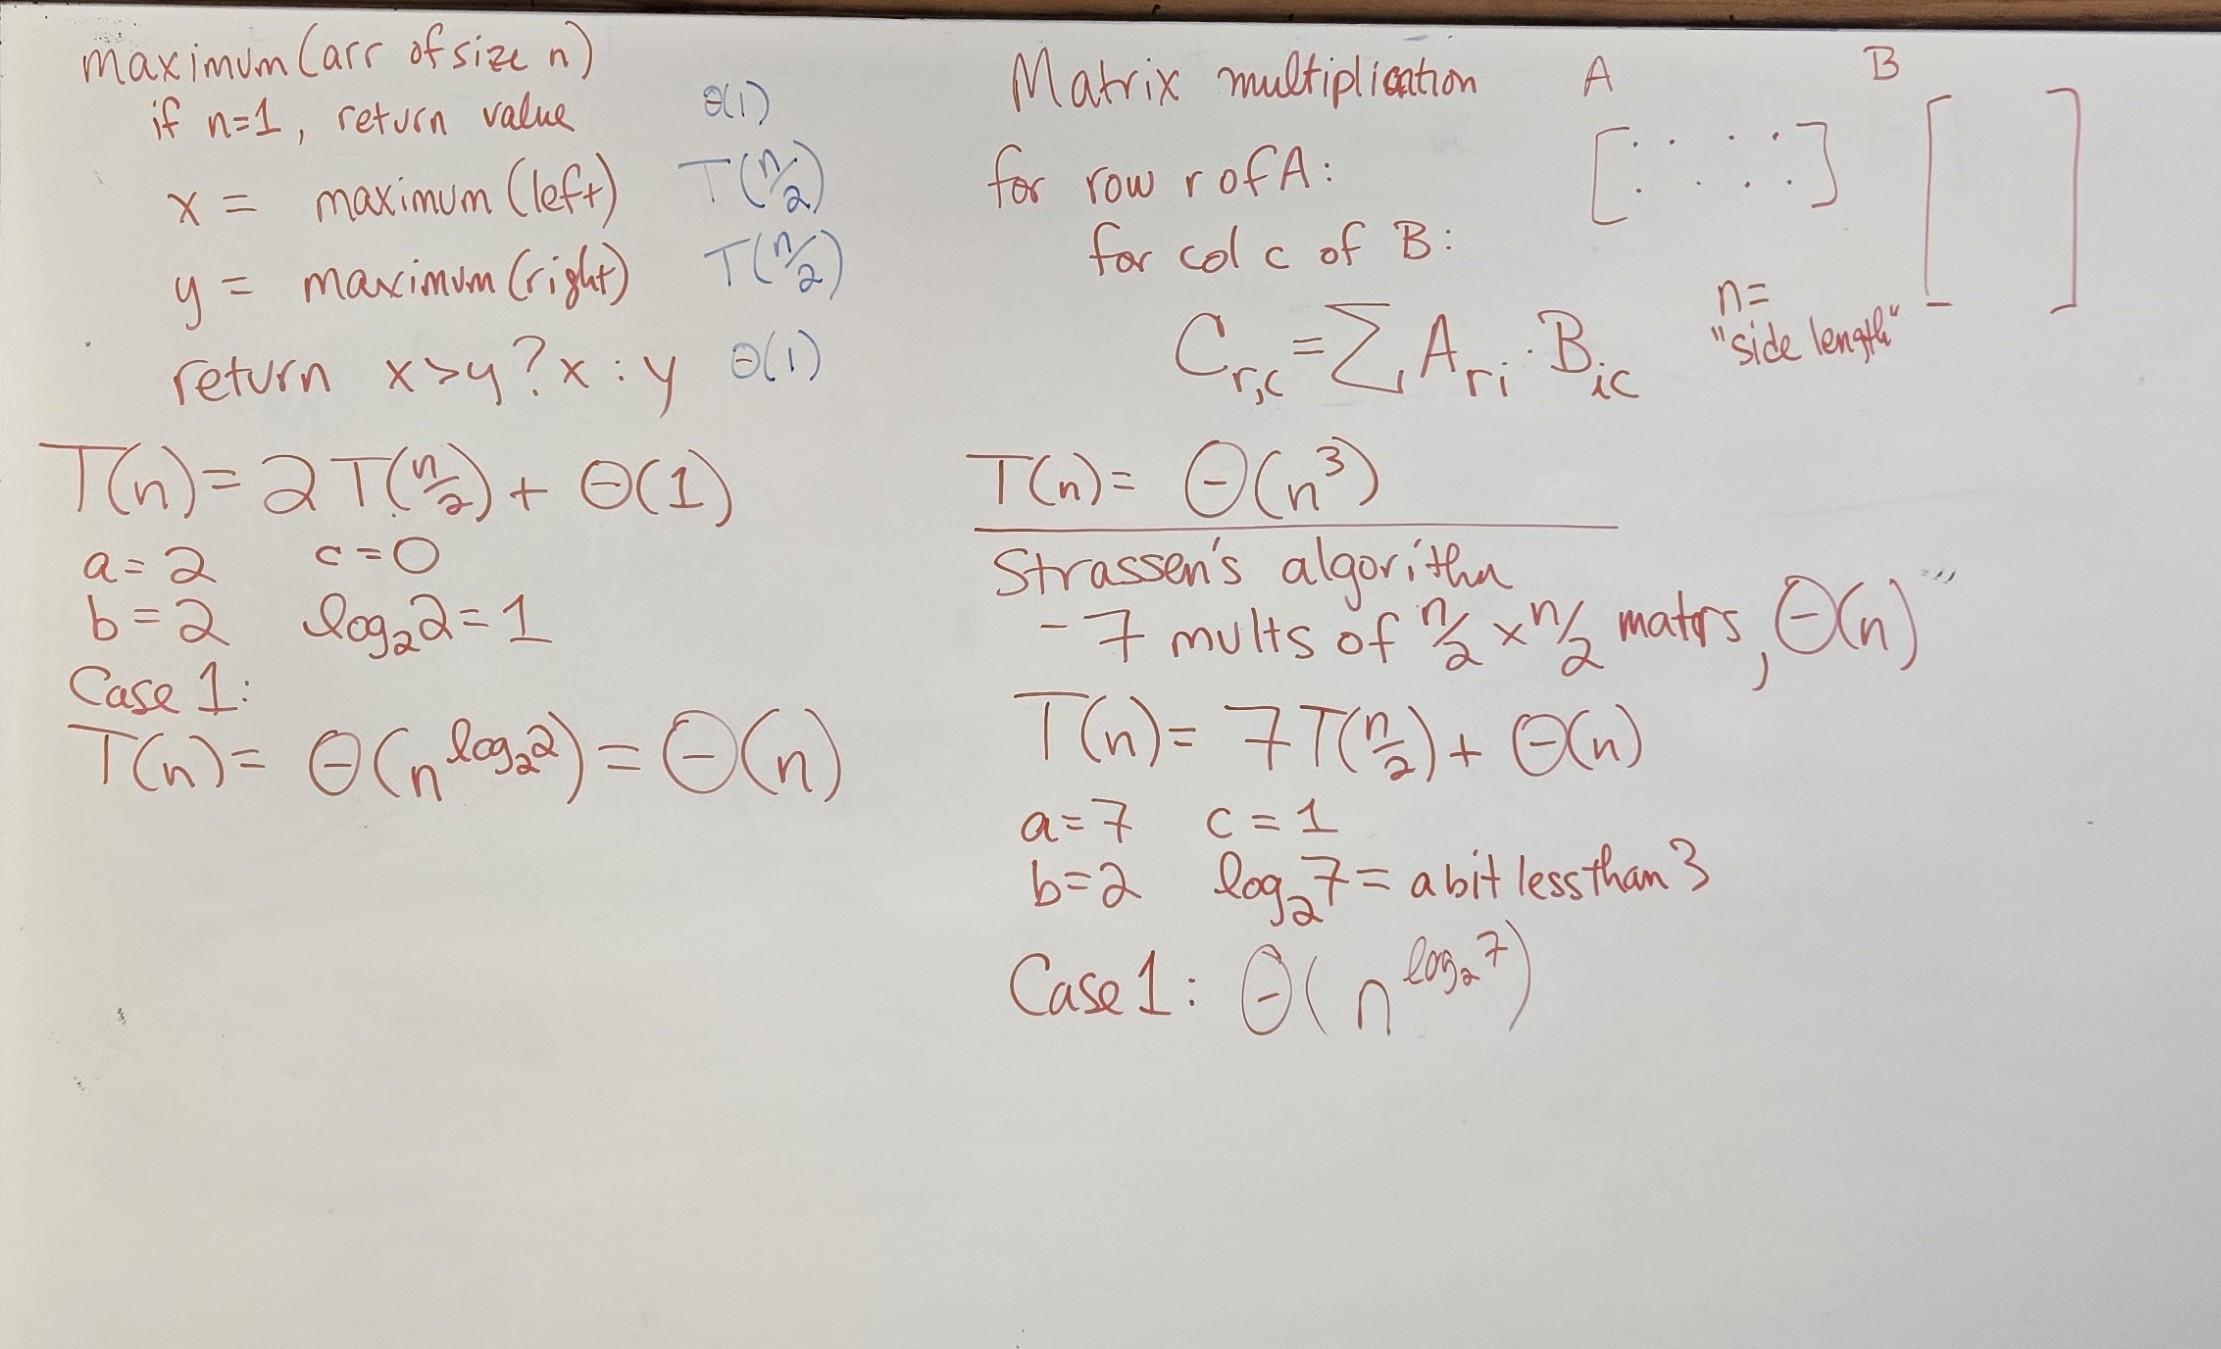 maximum(arr of size n)
if n=1, return value Θ(1)
x = maximum(left) T(n/2)
y = maximum(right) T(n/2)
return x>y?x:y Θ(1)
T(n)=2T(n/2)+Θ(1)
a=2 c=0
b=2 log₂2=1
Case 1:
T(n)=Θ(n^log₂2)=Θ(n)
Matrix multiplication
for row r of A:
for col c of B:
C_r,c=∑A_ri·B_ic
A B
n=
"side length"
T(n)=Θ(n³)
Strassen's algorithm
-7 mults of n/2×n/2 matrs, Θ(n)
T(n)=7T(n/2)+Θ(n)
a=7 c=1
b=2 log₂7=a bit less than 3
Case 1: Θ(n^log₂7)